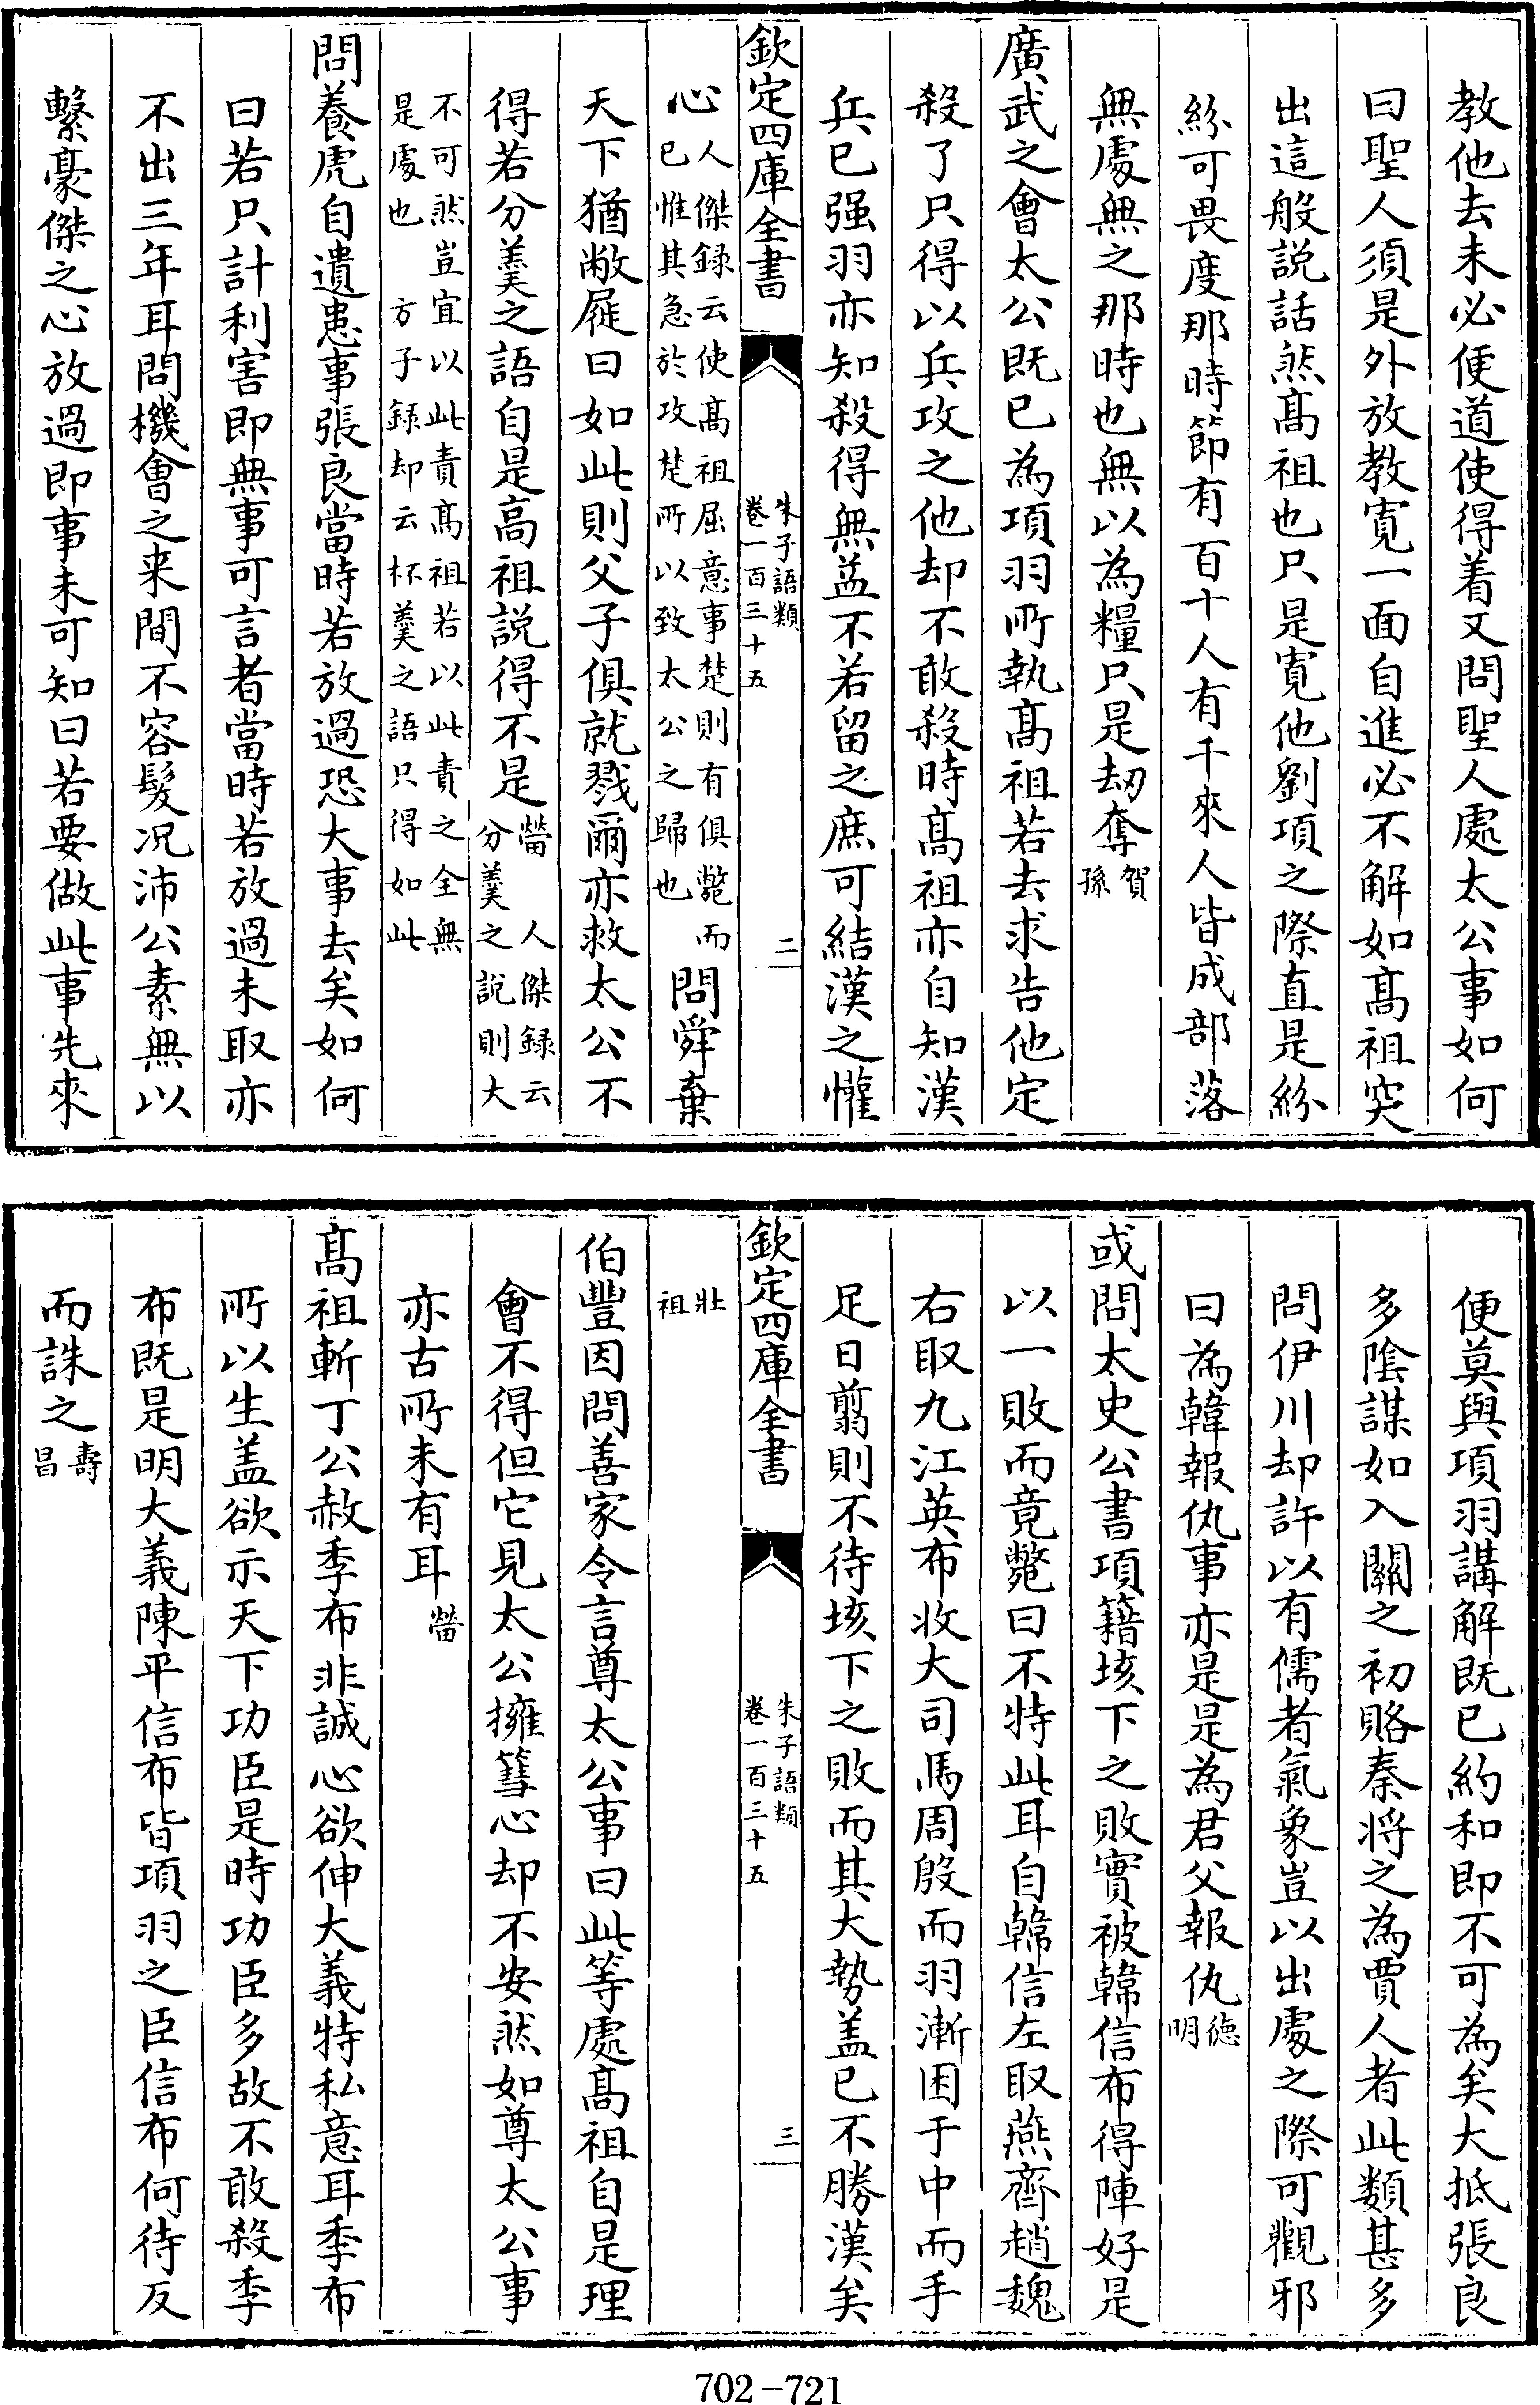 教他去未必便道使得着又問聖人處太公事如何
曰聖人須是外放教寛一面自進必不解如髙祖突
出這般説話然髙祖也只是寛他劉項之際直是紛
紛可畏度那時節有百十人有千來人皆成部落
無處無之那時也無以為糧只是刼奪賀孫
廣武之會太公既已為項羽所執髙祖若去求告他定
殺了只得以兵攻之他却不敢殺時髙祖亦自知漢
兵已强羽亦知殺得無益不若留之庶可結漢之懽
欽定四庫全書
朱子語類
卷一百三十五
二
心人傑録云使髙祖屈意事楚則有俱斃而
已惟其急於攻楚所以致太公之歸也問舜棄
天下猶敝屣曰如此則父子俱就戮爾亦救太公不
得若分羮之語自是高祖説得不是㽦 人傑録云
分羮之説則大
不可然豈宜以此責髙祖若以此責之全無
是處也 方子録却云杯羮之語只得如此
問養虎自遺患事張良當時若放過恐大事去矣如何
曰若只計利害即無事可言者當時若放過未取亦
不出三年耳問機會之来間不容髮况沛公素無以
繫豪傑之心放過即事未可知曰若要做此事先來
便莫與項羽講解既已約和即不可為矣大抵張良
多陰謀如入關之初賂秦将之為賈人者此類甚多
問伊川却許以有儒者氣象豈以出處之際可觀邪
曰為韓報仇事亦是是為君父報仇徳明
或問太史公書項籍垓下之敗實被韓信布得陣好是
以一敗而竟斃曰不特此耳自韓信左取燕齊趙魏
右取九江英布收大司馬周殷而羽漸困于中而手
足日翦則不待垓下之敗而其大勢盖已不勝漢矣
欽定四庫全書
朱子語類
卷一百三十五
三
壯祖
伯豐因問善家令言尊太公事曰此等處髙祖自是理
會不得但它見太公擁篲心却不安然如尊太公事
亦古所未有耳㽦
髙祖斬丁公赦季布非誠心欲伸大義特私意耳季布
所以生盖欲示天下功臣是時功臣多故不敢殺季
布既是明大義陳平信布皆項羽之臣信布何待反
而誅之壽昌
702-721